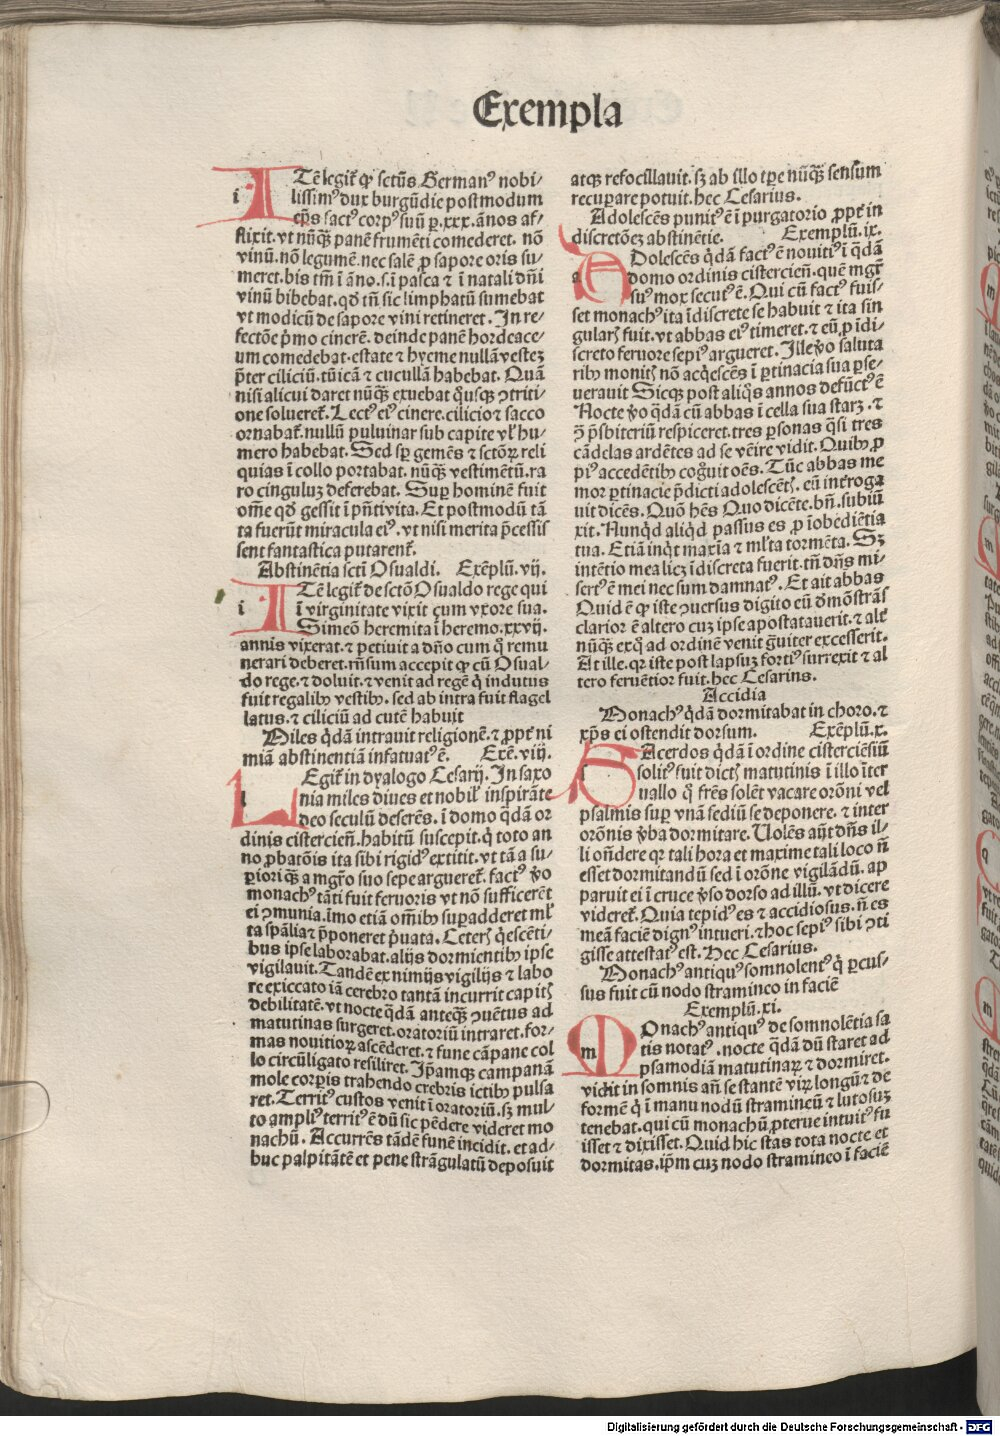 Exempla
ITē legiť ꝙ sctūs Germanꝰ nobi-
lissimꝰ dux burgūdie postmodum
ep̄s sactꝰ corpꝰ suū ꝑ .xxx. ānos af-
flixit. vt nūꝙ̄ panē frumēti comederet. nō
vinū. nō legumē. nec salē ꝓ sapore oris su-
meret. bis tm̄ ī āno. s. ī pasca ⁊ ī natali dn̄i
vinū bibebat. qd̄ tn̄ sic limphatū sumebat
vt modicū de sapore vini retineret. In re-
fectōe p̄mo cinerē. deinde panē hordeace-
um comedebat. estate ⁊ hyeme nullā vestez
p̄ter ciliciū. tūicā ⁊ cucullā habebat. Quā
nisi alicui daret nūꝙ̄ exuebat q̇usꝙ ꝯtriti-
one solueret̄. Lectꝰ eiꝰ cinere. cilicio ⁊ sacco
ornabat̄. nullū puluinar sub capite vl̓ hu-
mero habebat. Sed sꝑ gemēs ⁊ sctōꝝ reli
quias ī collo portabat. nūꝙ̄ vestimētū. ra
ro cinguluz deferebat. Suꝑ hominē fuit
om̄e qd̄ gessit ī pn̄tivita. Et postmodū tā
ta fuerūt miracula eiꝰ. vt nisi merita p̄cessis
sent fantastica putarent̄.
Abstinētia sctī Osualdi. Exēplū. vij.
ITē legiť de sctō Osualdo rege qui
ī virginitate vixit cum vxore sua.
Simeō heremita ī heremo. xxvij.
annis vixerat. ⁊ petiuit a dn̄o cum q̇ remu
nerari deberet. rn̄sum accepit ꝙ cū Osual-
do rege. ⁊ doluit. ⁊ venit ad regē q̇ indutus
fuit regalibꝫ vestibꝫ. sed ab intra fuit flagel
latus. ⁊ ciliciū ad cutē habuit
Miles q̇dā intrauit religionē. ⁊ ꝓpť ni
miā abstinentiā infatuatꝰ ē. Exē. viij.
LEgiť in dyalogo Cesarij. In saxo
nia miles diues et nobil̓ inspirāte
deo seculū deserēs. ī domo q̇dā or
dinis cistercien̄. habitū suscepit. q̇ toto an
no ꝓbatōis ita sibi rigidꝰ extitit. vt tā a su-
ꝑiori qꝫ a mgr̄o suo sepe argueret̄. factꝰ ꝟo
monachꝰ tāti fuit feruoris vt nō sufficerēt
ei ꝯmunia. īmo etiā om̄ibꝫ suꝑadderet ml̓
ta spāl̓ia ⁊ p̄poneret p̄uata. Ceterꝭ q̇escēti-
bus ipse laborabat. alijs dormientibꝫ ipse
vigilauit. Tandē ex nimijs vigilijs ⁊ labo
re exiccato iā cerebro tantā incurrit capitꝭ
debilitatē. vt nocte q̇dā anteꝙ̄ ꝯuētus ad
matutinas surgeret. oratoriū intraret. for-
mas nouitioꝝ ascēderet. ⁊ fune cāpane col
lo circūligato resiliret. Ip̄amqꝫ campanā
mole corꝑis trahendo crebris ictibꝫ pulsa
ret. Territꝰ custos venit ī oratoriū. sꝫ mul-
to ampliꝰ territꝰ ē dū sic pēdere videret mo
nachū. Accurrēs tādē funē incidit. et ad-
huc palpitātē et pene strāgulatū deposuit
atqꝫ refocillauit. sꝫ ab illo tp̄e nūꝙ̄ sensum
recuꝑare potuit. hec Cesarius.
Adolescēs punitꝰ ē ī purgatorio ꝓpť in
discretōez abstinētie. Exemplū. ix.
ADolescēs q̇dā factꝰ ē nouitiꝰ ī q̇dā
domo ordinis cistercien̄. quē mgr̄
suꝰ mox secutꝰ ē. Qui cū factꝰ fuis-
set monachꝰ ita īdiscrete se habuit ⁊ ita sin
gularꝭ fuit. vt abbas eiꝰ timeret. ⁊ eū ꝓ īdi-
screto feruore sepiꝰ argueret. Ille ꝟo saluta
ribꝫ monitꝭ nō acq̇escēs ī ꝑtinacia sua ꝑse-
uerauit Sicqꝫ post aliq̇s annos defūctꝰ ē
Nocte ꝟo q̇dā cū abbas ī cella sua starꝫ. ⁊
ꝯ p̄sbiteriū respiceret. tres ꝑsonas q̇si tres
cādelas ardētes ad se vēire vidit. Quibꝫ ꝓ
piꝰ accedētibꝫ cog̓uit oēs. Tūc abbas me
mor ꝑtinacie p̄dicti adolescētꝭ. eū interroga
uit dicēs. Quō hēs Quo dicēte. bn̄. subiū
xit. Nunqd̄ aliqd̄ passus es ꝓ īobediētia
tua. Etiā inq̇t maxīa ⁊ ml̓ta tormēta. Sꝫ
intētio mea licꝫ īdiscreta fuerit. tn̄ dn̄s mi-
sertꝰ ē mei nec sum damnatꝰ. Et ait abbas
Quid ē ꝙ iste ꝯuersus digito eū dēmōstrās
clarior ē altero cuz ipse apostatauerit. ⁊ alť
nūꝙ̄ exq̇ ad ordinē venit g̓uiter excesserit.
At ille. qꝛ iste post lapsuz fortiꝰ surrexit ⁊ al
tero feruētior fuit. hec Cesarius.
Accidia
Monachꝰ q̇dā dormitabat in choro. ⁊
xp̄s ei ostendit dorsum. Exēplū. x.
SAcerdos q̇dā ī ordine cisterciēsiū
solitꝰ fuit dictꝭ matutinis ī illo īter
uallo q̇ frēs solēt vacare orōni vel
psalmis suꝑ vnā sediū se deponere. ⁊ inter
orōnis ꝟba dormitare. Uolēs aūt dn̄s il-
li on̄dere qꝛ tali hora et maxime tali loco n̄
esset dormitandū sed ī orōne vigilādū. ap
paruit ei ī cruce ꝟso dorso ad illū. vt dicere
videret̄. Quia tepidꝰ es ⁊ accidiosus. n̄ es
meā faciē dignꝰ intueri. ⁊ hoc sepiꝰ sibi ꝯti
gisse attestatꝰ est. Hec Cesarius.
Monachꝰ antiquꝰ somnolentꝰ q̇ ꝑcus-
sus fuit cū nodo stramineo in faciē
Exemplū. xi.
MOnachꝰ antiquꝰ de somnolētia sa
tis notatꝰ. nocte q̇dā dū staret ad
psamodiā matutinaꝝ ⁊ dormiret.
vidit in somnis an̄ se stantē viꝝ longū ⁊ de
formē q̇ ī manu nodū stramineū ⁊ lutosuz
tenebat. qui cū monachū ꝓterue intuitꝰ fu
isset ⁊ dixisset. Quid hic stas tota nocte et
dormitas. ip̄m cuz nodo stramineo ī faciē
Digitalisierung gefördert durch die Deutsche Forschungsgemeinschaft - DFG